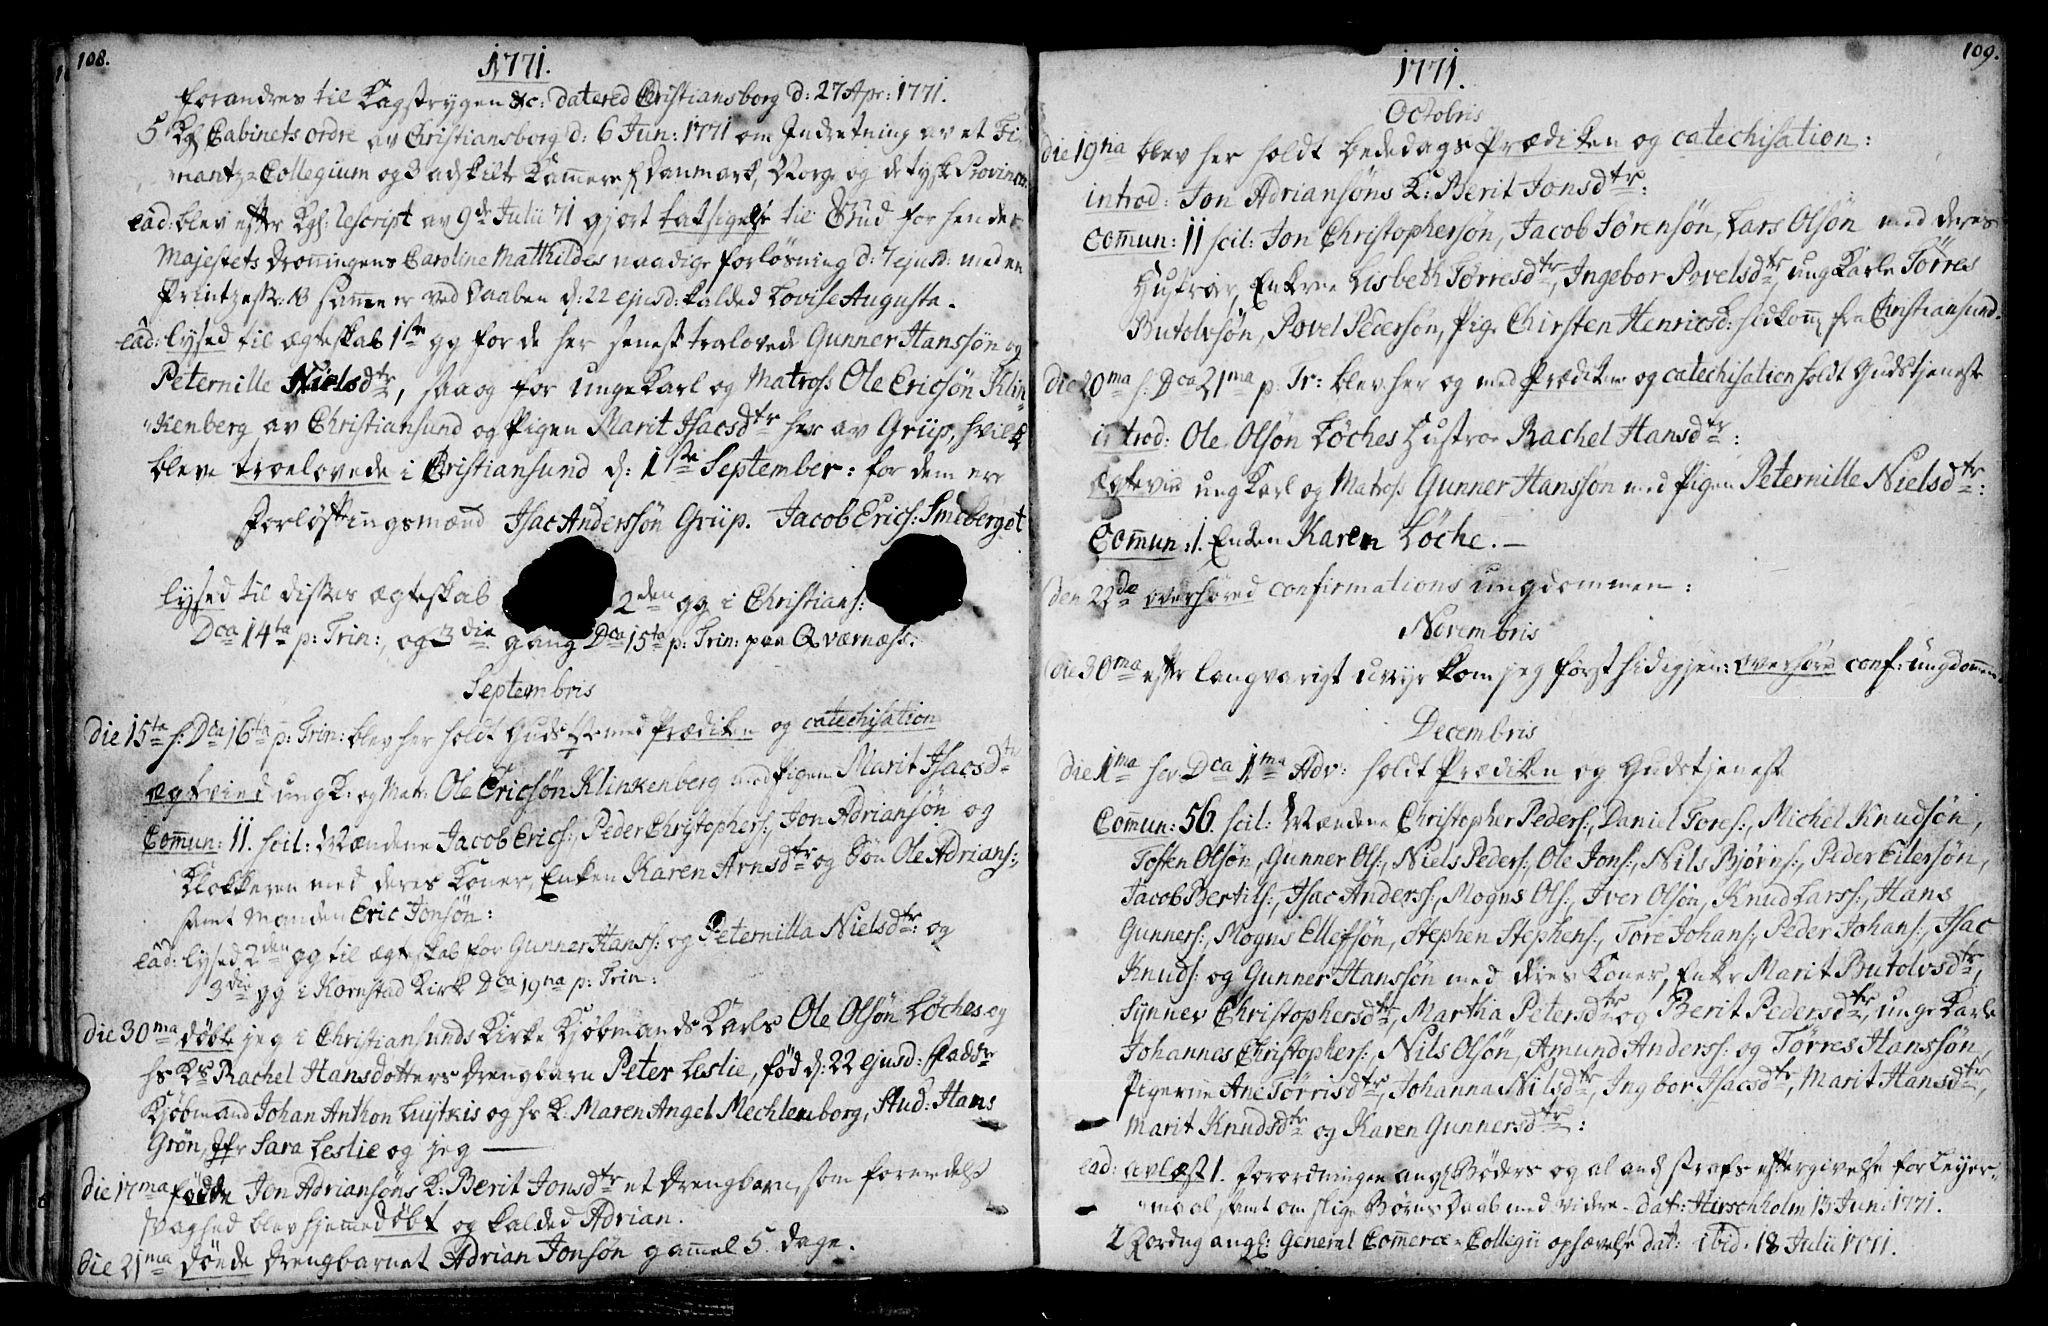 108.
1771.
forandres til Kagstrygen &c: datered Christiansborg d: 27 Apr: 1771.
5 Kgl Cabinets ordre av Christiansborg d: 6 Jun: 1771 om Indretning av et Fi-
nantz-Collegium og 3 adskilte Kammere f Danmark, Norge og de tyske Provincer.
ead: blev efter Kgl: rescript av 9de Julii 71 gjort taksigelse til Gud for hendes
Majestets Dronningens Caroline Mathildes naadige forløsning d: 7 ejusd: med en
Printzesse, som er ved Daaben d: 22 ejusd: kalded Lovise Augusta.
ead: lysed til ægteskab 1ste gg for de her senest trolovede Gunner Hanssøn og
Peternille Nielsdtr, saa og for unge Karl og Matros Ole Ericsøn Klin-
kenberg av Christiansund og Pigen Marit Isacsdtr her av Griip, hvilke
bleve troelovede i Christiansund d: 1ste September: for dem ere
Forløftningsmænd Isac Anderssøn Griip. Jacob Erics: Smeberget
lysed til disses ægteskab 2den gg i Christians:
Dca 14ta p: Trin:, og 3die gang Dca 15ta p: Trin: paa Qværnæss.
Septembris
die 15ta f: Dca 16ta p: Trin: blev her holdt Guds Tje med Prædiken og catechisation
ægtevied ung K: og Mat: Ole Ericsøn Klinkenberg med Pigen Marit Isacsdtr
Comun: 11. scil: Mændene Jacob Erics:, Peder Christophers:, Jon Adriansøn og
Klokkeren med deres Koner, Enken Karen Arnsdtr og Søn Ole Adrians:,
samt Manden Eric Jonsøn:
ead: lysed 2den gg til ægteskab for Gunner Hanss: og Peternilla Nielsdtr: og
3die gg i Kornstad Kirk Dca 19na p: Trin:
die 30ma döbte jeg i Christiansunds Kirke Kjøbmands Karls Ole Olsøn Løches og
hs Ks Rachel Hansdotters Drengbarn Peter Leslie, fød d: 22 ejusd: Fadd:
Kjøbmand Johan Anthon Luÿtkis og hs K: Maren Angel Mechlenborg, Stud: Hans
Grøn, Jfr Sara Leslie og jeg
die 17ma fødde Jon Adriansøns K: Berit Jonsdtr et Drengbarn, som formedelst
svaghed blev hjemmedöbt og kalded Adrian.
die 21ma döede Drengbarnet Adrian Jonsøn gammel 5 dage.
109.
1771.
Octobris
die 19na blev her holdt bededags Prædiken og catechisation:
introd: Jon Adriansøns K: Berit Jonsdtr:
Comun: 11 scil: Jon Christophersøn, Jacob Sørensøn, Lars Olsøn med deres
Hustroer, Enkene Lisbeth Tørresdtr, Ingebor Povelsdtr, ung Karle Tørres
Butolvsøn, Povel Pedersøn, Pige Chirsten Henricsd: hidkom fra Christiansund.
die 20ma f: Dca 21ma p: Tr: blev her og med Prædiken og catechisation holdt Gudstjeneste
introd: Ole Olsøn Løches Hustroe Rachel Hansdtr:
ægtevied ung Karl og Matros Gunner Hanssøn med Pigen Peternille Nielsdtr:
Comun: 1. Enken Karen Løche.—
den 22de overhøred confirmations ungdommen:
Novembris
die 30ma efter langvarigt uveyr kom jeg først hid igjen: overhøred conf: ungdommen.
Decembris
die 1ma f: Dca 1ma Adv: holdt Prædiken og Gudstjeneste
Comun: 56. scil: Mændene Christopher Peders:, Daniel Tores:, Michel Knudsøn,
Tosten Olsøn, Gunner Ols:, Niels Peders:, Ole Jons:, Nils Bjørns:, Peder Eilersøn,
Jacob Bertils:, Isac Anderss:, Mogns Ols:, Iver Olsøn, Knud Larss:, Hans
Gunners:, Mogns Ellefsøn, Stephen Stephens:, Tore Johans:, Peder Johans:, Isac
Knuds: og Gunner Hanssøn med deres Koner, Enkr Marit Butolvsdtr,
Synnev Christophersdtr, Martha Petersdtr og Berit Pedersdtr, unge Karle
Johannes Christophers:, Nils Olsøn, Amund Anderss: og Tørres Hanssøn
Pigerne Ane Tørrisdtr, Johanna Nilsdtr, Ingbor Isacsdtr, Marit Hansdtr,
Marit Knudsdtr og Karen Gunnersdtr:
ead: avlæst 1. Forordningen angl Bøders og al and straffs eftergivelse for Leyer-
maal, samt om slige Børns Daab med videre. dat: Hirschholm 13 Jun: 1771.
2 Forordng angl: General Comerce-Collegii ophævelse dat: ibid. 18 Julii 1771.